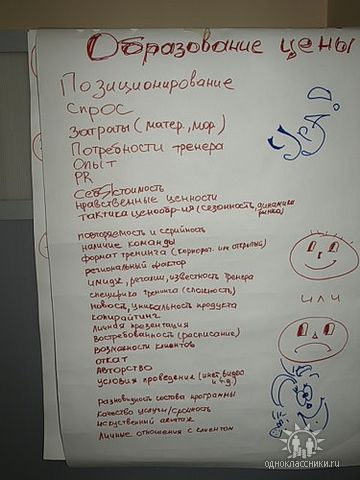 Образование цены
Позиционирование
Спрос
Затраты (матер., мор.)
Потребности тренера
Опыт
PR
Себестоимость
нравственные ценности
тактика ценообр-ия (сезонность, динамика рынка)
повторяемость и серийность
наличие команды
формат тренинга (корпорат. или открытый)
региональный фактор
имидж, регалии, известность тренера
специфика тренинга (сложность)
новость, уникальность продукта
копирайтинг
личная презентация
востребованность (расписание)
возможности клиентов
откат
Авторство
условия проведения (инет, видео и т.д.)
разновидность состава программы
качество услуги/срочность
искуственный
личные отношения с клиентом
УРА
или
одноклассники.ru